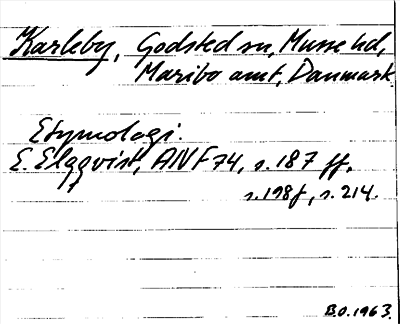 Karleby, Godsted sn, Musse hd,
Maribo amt, Danmark.
Etymologi.
E. Elqqvist, ANF 74, s. 187 ff,
s. 198f, s. 214.
B.O. 1963.